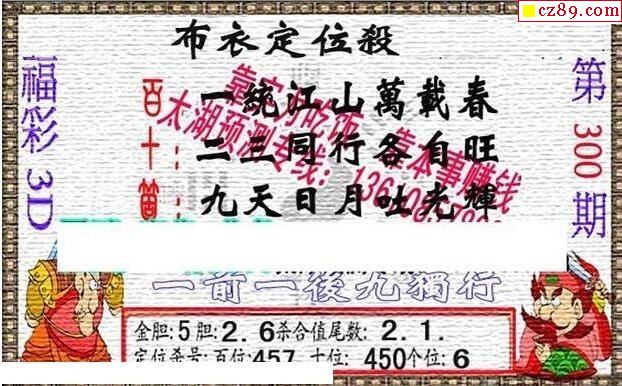 cz89.com
布衣定位殺
福彩3D
第300期
百：一統江山萬載春
十：二三同行各自旺
箇：九天日月吐光輝
太湖预测专线：
靠本事赚钱
一前一後九獨行
金胆:5胆:2.6杀合值尾数:2.1.
定位杀号:百位:457 十位:450个位:6